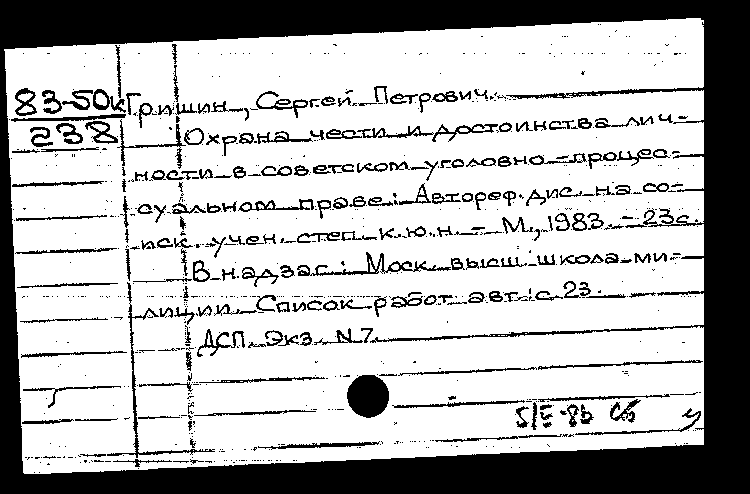 83-50к
238
Гришин, Сергей Петрович.
Охрана чести и достоинства лич-
ности в советском уголовно-процес-
суальном праве: Автореф. дис. на со-
иск. учен. степ. к.ю.н. - М., 1983. - 23с.
В надзаг.: Моск. высш. школа ми-
лиции. Список работ авт.: с. 23.
ДСП. Экз. N 7.